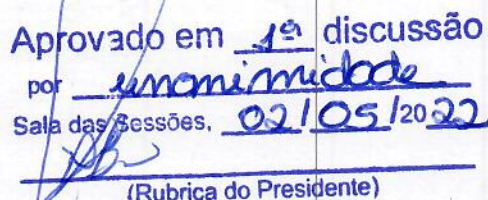 Aprovado em 1ª discussão
por unanimidade
Sala das Sessões, 02/05/2022
(Rubrica do Presidente)